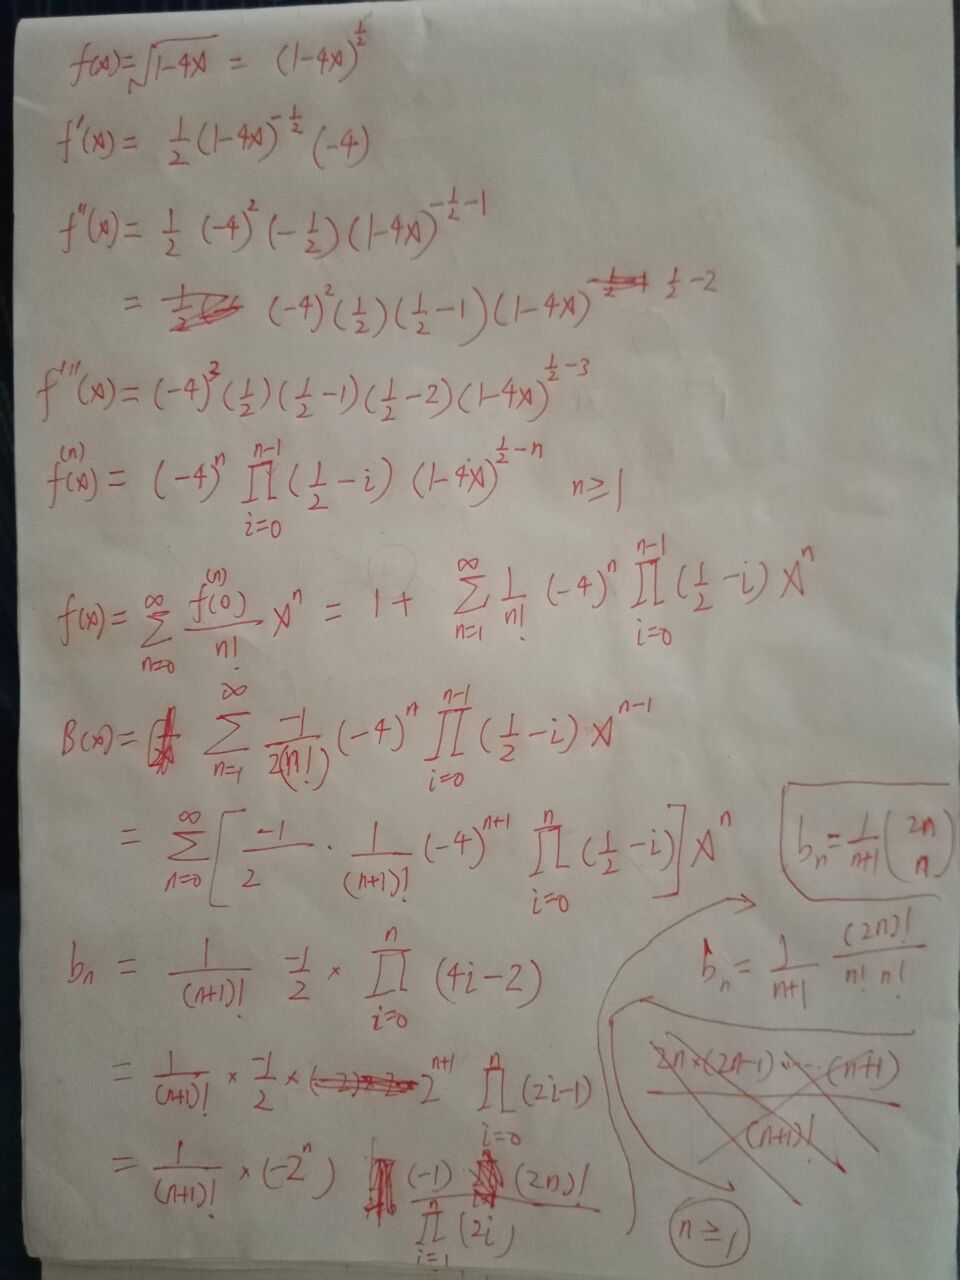 f(x)=√(1-4x) = (1-4x)^{1/2}
f'(x)= 1/2 (1-4x)^{-1/2} (-4)
f''(x)= 1/2 (-4)^2 (-1/2) (1-4x)^{-1/2-1}
= (-4)^2 (1/2) (1/2-1) (1-4x)^{1/2-2}
f'''(x)= (-4)^3 (1/2) (1/2-1) (1/2-2) (1-4x)^{1/2-3}
f^{(n)}(x)= (-4)^n ∏_{i=0}^{n-1} (1/2-i) (1-4x)^{1/2-n} n≥1
f(x)= ∑_{n=0}^{∞} f^{(n)}(0)/n! x^n = 1+ ∑_{n=1}^{∞} 1/n! (-4)^n ∏_{i=0}^{n-1} (1/2-i) x^n
B(x)= ∑_{n=1}^{∞} -1/2(n!) (-4)^n ∏_{i=0}^{n-1} (1/2-i) x^{n-1}
= ∑_{n=0}^{∞} [ -1/2 · 1/(n+1)! (-4)^{n+1} ∏_{i=0}^{n} (1/2-i) ] x^n
b_n = 1/(n+1)! -1/2 × ∏_{i=0}^{n} (4i-2)
= 1/(n+1)! × -1/2 × 2^{n+1} ∏_{i=0}^{n} (2i-1)
= 1/(n+1)! × (-2^n) (-1) (2n)! / ∏_{i=1}^{n} (2i)
b_n = 1/(n+1) (2n n)
b_n = 1/(n+1) (2n)!/(n! n!)
2n×(2n-1)×····(n+1) / (n+1)!
n≥1